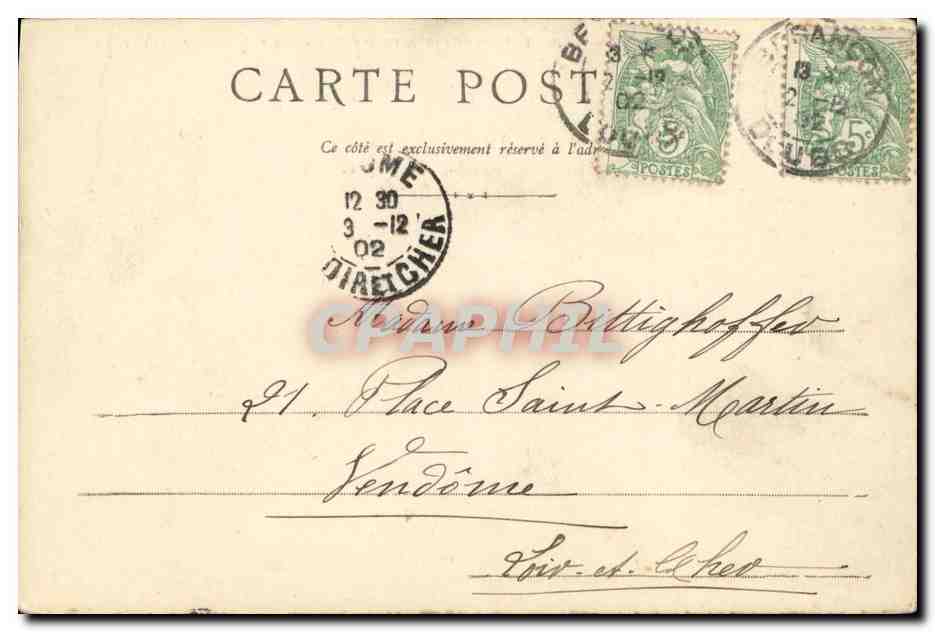 CARTE POST
Ce côté est exclusivement réservé à l'adr
BESANÇON
13 *
2 -12
02
DOUBS
5c
POSTES
BESANÇON
13
2 -12
02
DOUBS
5c
POSTES
OME
12 30
3 -12
02
OIR ET CHER
CPAPHIL
Madame Bittighoffer
21, Place Saint-Martin
Vendôme
Loir-et-Cher